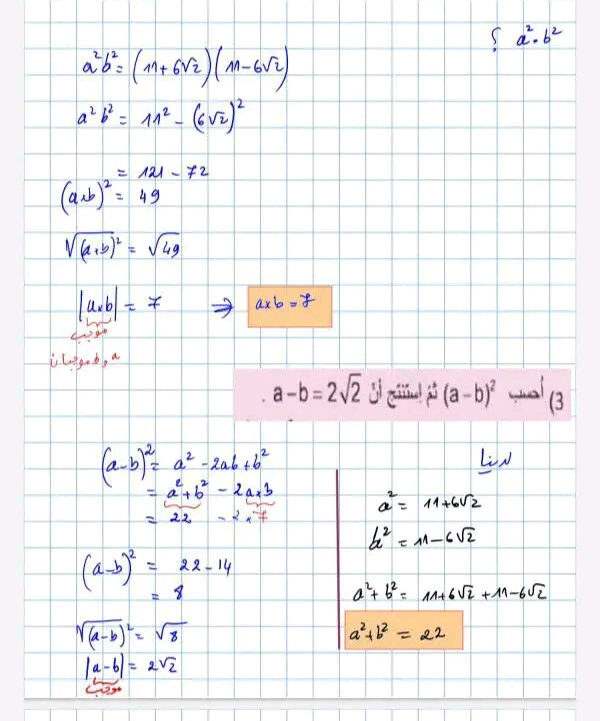 a²·b² ؟
a²b² = (11+6√2)(11-6√2)
a²b² = 11² - (6√2)²
= 121 - 72
(a×b)² = 49
√(a×b)² = √49
|a×b| = 7 ⇒ a×b = 7
موجب
a و b موجبان
3) أحسب (a-b)² ثمّ إستنتج أنّ a-b = 2√2 .
(a-b)² = a² - 2ab + b²
= a² + b² - 2a×b
= 22 - 2×7
(a-b)² = 22-14
= 8
√(a-b)² = √8
|a-b| = 2√2
موجب
لدينا
a² = 11+6√2
b² = 11-6√2
a²+b² = 11+6√2+11-6√2
a²+b² = 22